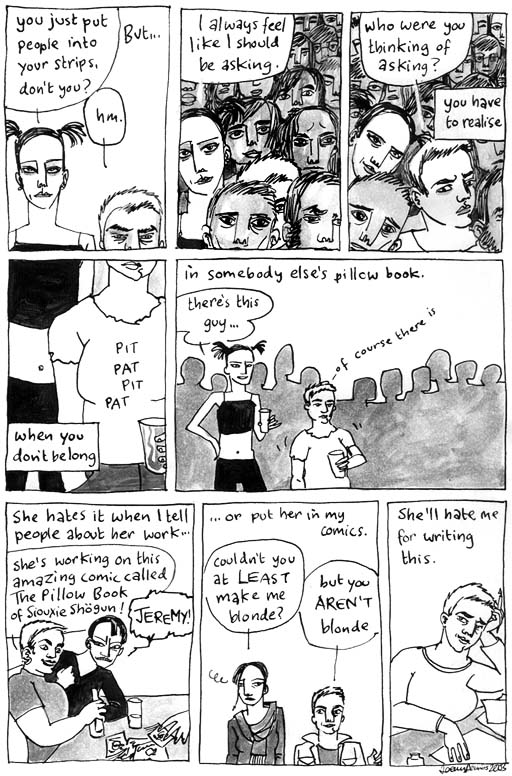 you just put
people into
your strips,
don't you?
But...
hm.
I always feel
like I should
be asking.
who were you
thinking of
asking?
you have
to realise
PIT
PAT
PIT
PAT
when you
don't belong
in somebody else's pillow book.
there's this
guy...
of course there is
She hates it when I tell
people about her work...
She's working on this
amazing comic called
The Pillow Book
of Siouxie Shōgun!
JEREMY!
... or put her in my
comics.
couldn't you
at LEAST
make me
blonde?
but you
AREN'T
blonde
She'll hate me
for writing
this.